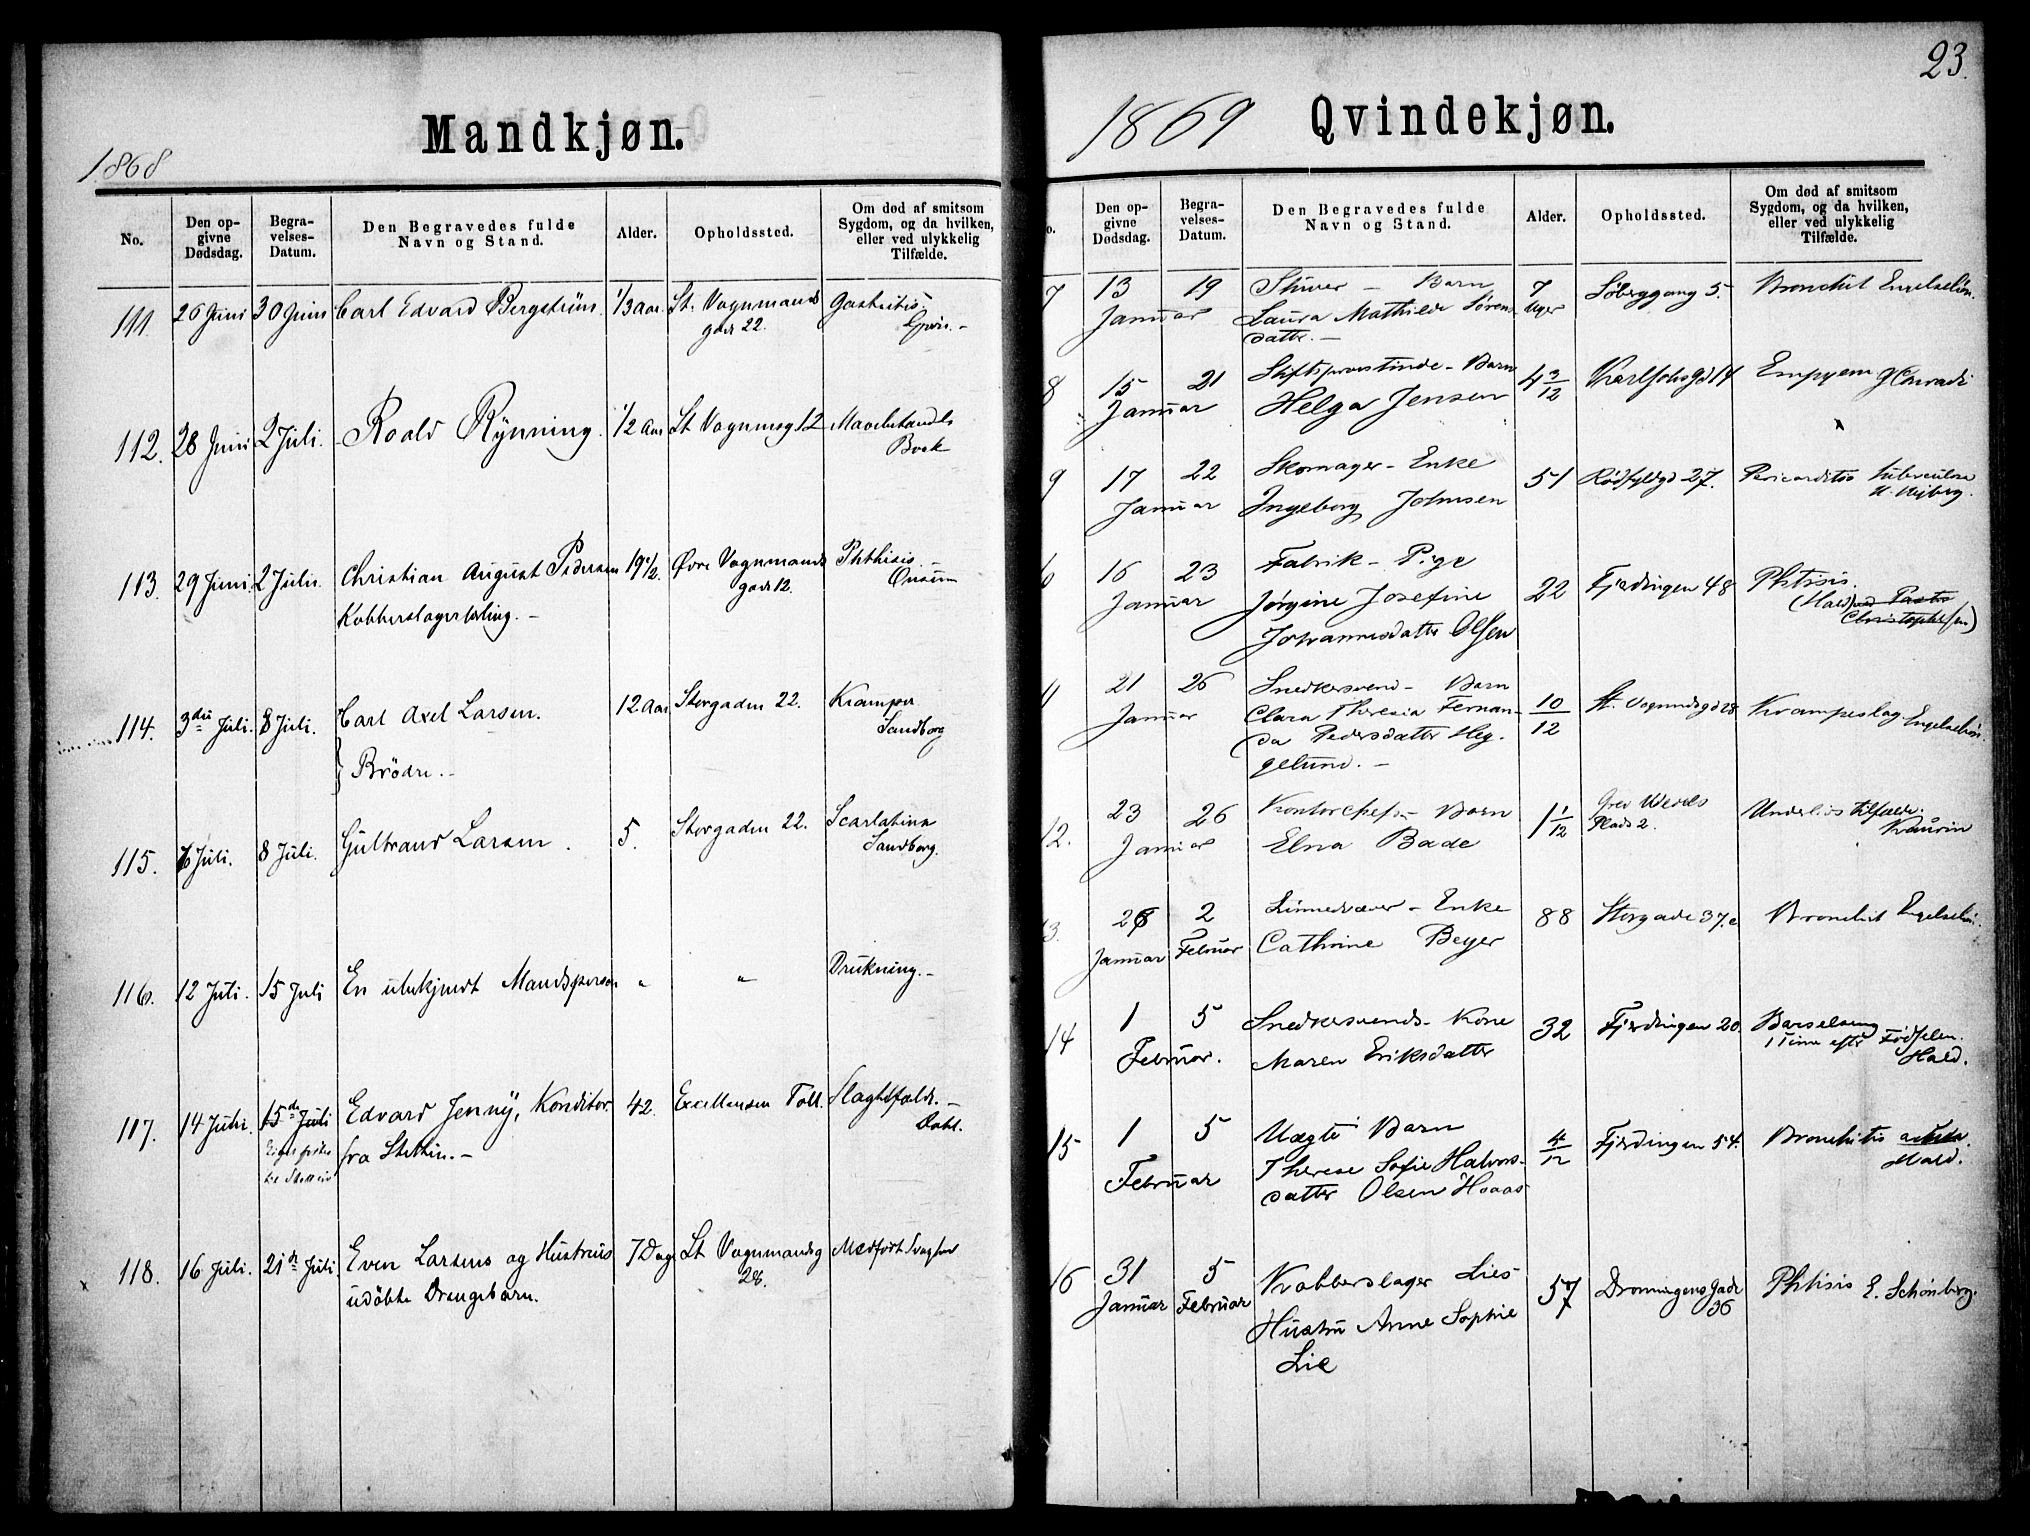 Mandkjøn.
1868
No.
Den opgivne Dødsdag.
Begravelses-Datum.
Den Begravedes fulde Navn og Stand.
Alder.
Opholdssted.
Om død af smitsom Sygdom, og da hvilken, eller ved ulykkelig Tilfælde.
111. 26 Juni 30 Juni Carl Edvard Bergström 1/3 Aar. St. Vognmands Gastritis.
gade 22.
112. 28 Juni 2 Juli. Roald Rynning. 1/2 Aar St Vognmsg 12
Boek
113. 29 Juni 2 Juli. Christian August Pedersen 19 1/2. Øvre Vognmands Phthisis.
Kobberslagerlærling. gade 12.
114. 3die Juli. 8 Juli. Carl Axel Larsen. 12 Aar Storgaden 22. Kramper
Sandborg
} Brödre.
115. 6 Juli. 8 Juli. Gulbrand Larsen. 5. Storgaden 22. Scarlatina
Sandborg.
116. 12 Juli. 15 Juli En ubekjendt Mandsperson " " Drukning.
117. 14 Juli. 15de Juli Edvard Jenny, Konditor 42. Slagtilfælde.
fra Stettin. Dahl.
118. 16 Juli. 21de Juli. Even Larsens og Hustrus 7 Dag St Vognmandsg Medfört Svaghed
udöbte Drengebarn. 28.
23.
1869
Qvindekjøn.
o.
Den opgivne Dødsdag.
Begravelses-Datum.
Den Begravedes fulde Navn og Stand.
Alder.
Opholdssted.
Om død af smitsom Sygdom, og da hvilken, eller ved ulykkelig Tilfælde.
7 13 19 Barn 7 Søberggang 5. Bronchit Engelschiøn.
Januar Laura Mathilde Sørens Uger
datter.
8 15 21 Stiftsprovstinde - Barn 4 3/12 Karl Johsgd 14 Empyem
Januar Helga Jensen
9 17 22 Skomager - Enke 51 Rødfyldgd 27. Pericarditis tuberculosa
Januar Ingeborg Johnsen
16 23 Fabrik - Pige 22 Fjerdingen 48 Phtisis.
Januar Jørgine Josefine (Hald
Johannesdatter Olsen Christophersen)
11 21 26 Snedkersvend - Barn 10/12 St. Vognmdsgd 28 Krampeslag Engelschiøn.
Januar Clara Theresia Fernan-
da Pedersdatter Heg-
gelund.
12. 23 26 Kontorchefs - Barn 1 1/12 Grev Wedels
Januar Elna Bade Plads 2. Kaurin
3. 26 2 Linnedvæver - Enke 88 Storgade 37.c Bronchit Engelschiøn.
Januar Februar Cathrine Beyer
14 1 5 Snedkersvends - Kone 32 Fjerdingen 20 Barselseng
Februar. Maren Eriksdatter 1 Time efter Födselen.
Hald.
15 1 5 Uægte Barn 4/12 Fjerdingen 54. Bronchitis
Februar Therese Sofie Halvors- Hald.
datter Olsen Haaas
16 31 5 Kobberslager Lies 57 Dronningens Gade Phtisis E. Schönberg.
Januar Februar Hustru Anne Sophie 36
Lie